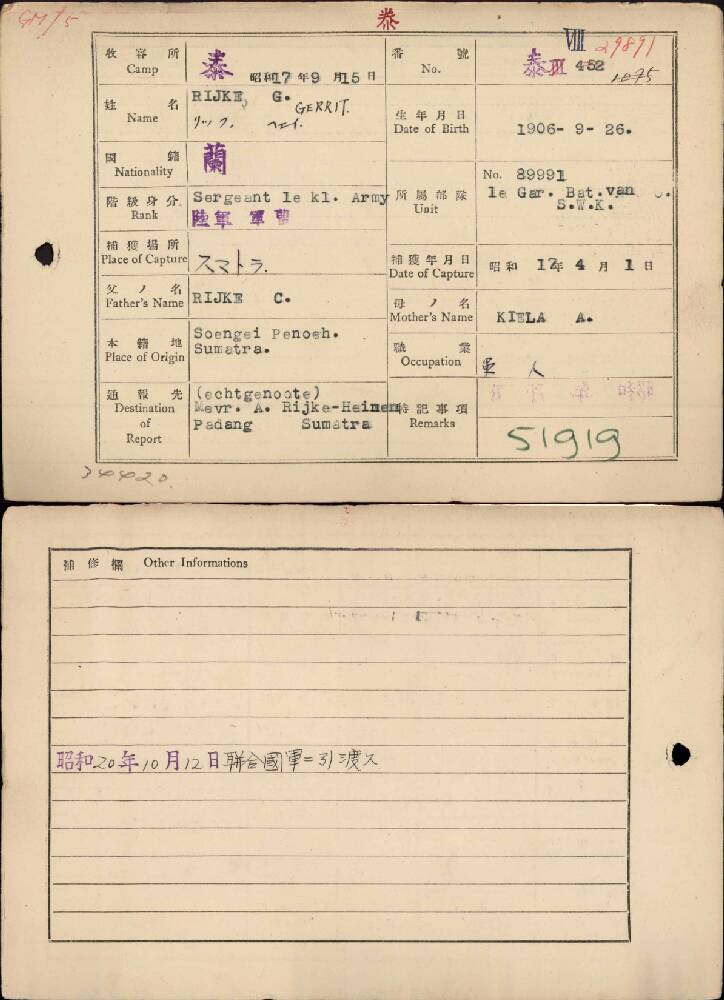 泰
GM/5
VIII
29891
收容所
Camp
泰 昭和17年9月15日
番號
No.
泰III 452
姓名
Name
RIJKE, G. GERRIT.
生年月日
Date of Birth
1906-9-26.
國籍
Nationality
蘭
階級身分
Rank
Sergeant 1e kl. Army
陸軍 軍曹
所屬部隊
Unit
No. 89991
1e Gar. Bat. van
S.W.K.
捕獲場所
Place of Capture
スマトラ.
捕獲年月日
Date of Capture
昭和 17年 4月 1日
父ノ名
Father's Name
RIJKE C.
母ノ名
Mother's Name
KIELA A.
本籍地
Place of Origin
Soengei Penoeh.
Sumatra.
職業
Occupation
軍人
通報先
Destination
of
Report
(echtgenoote)
Mevr. A. Rijke-Heinen
Padang Sumatra
特記事項
Remarks
51919
34420.
補修欄 Other Informations
昭和20年10月12日聯合國軍ニ引渡ス